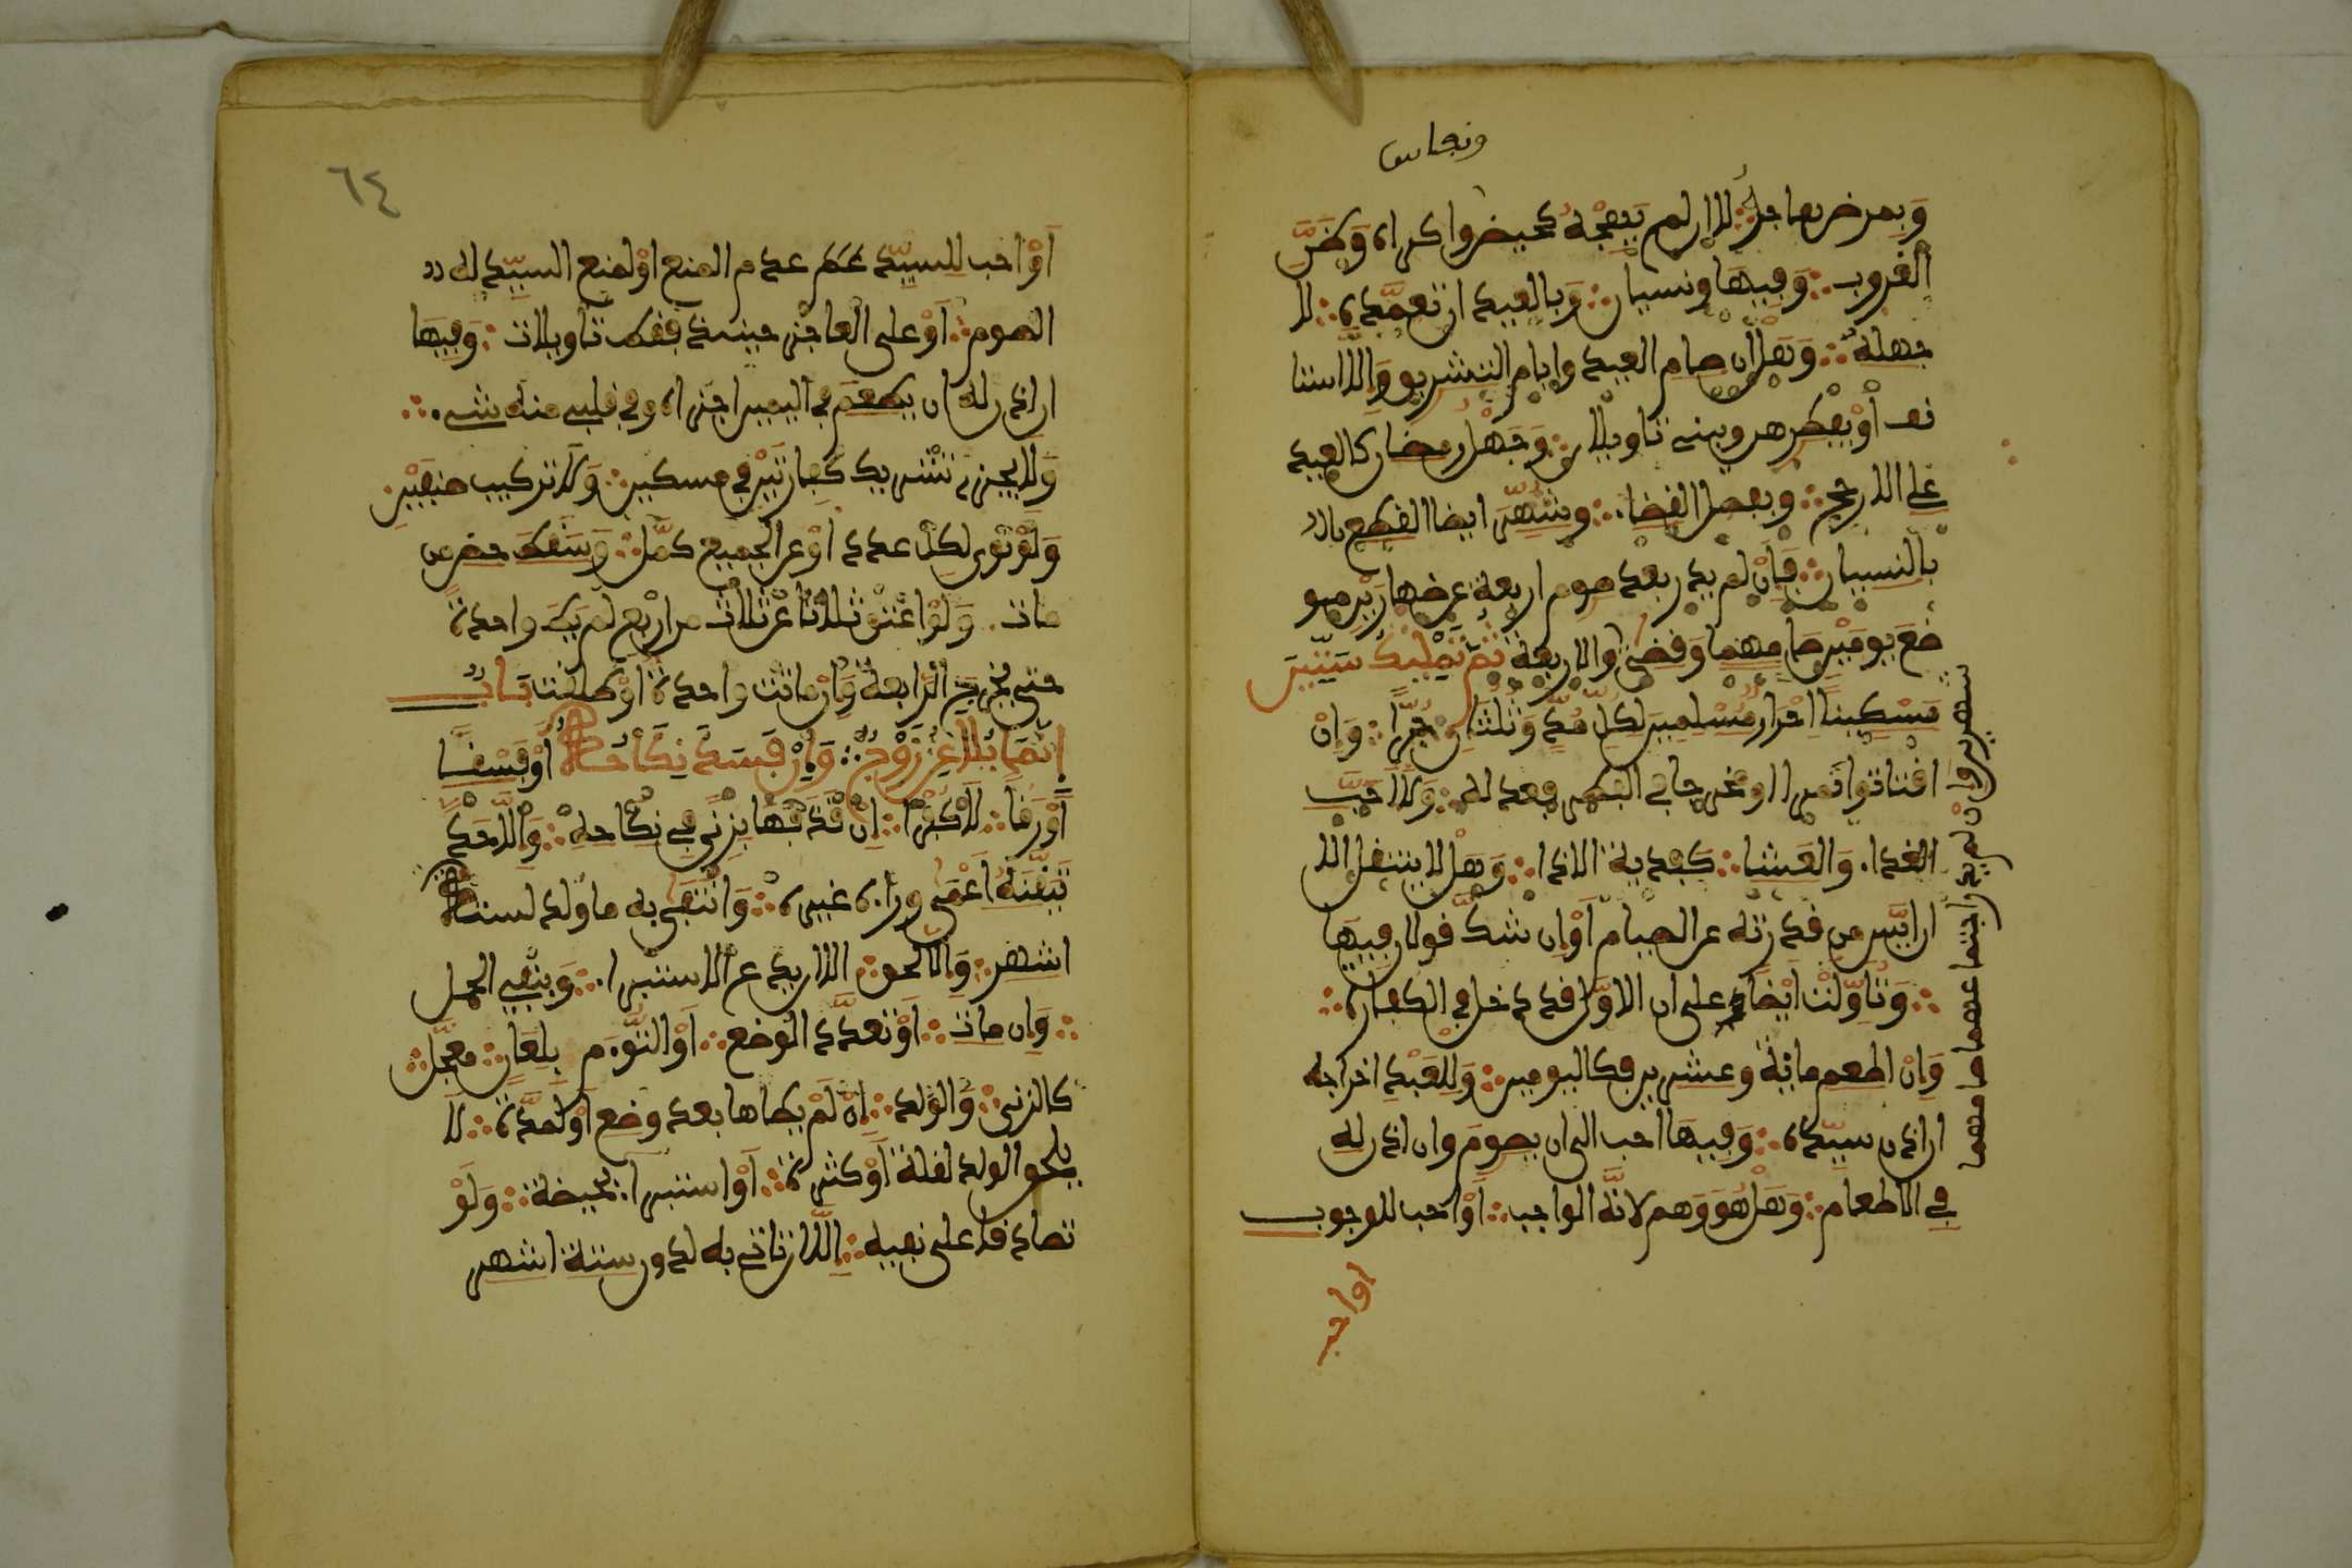 ونفاس
وبمرض هاجه لا ان لم يهجه كحيض واكراه وظن
الغروب وفيها ونسيان وبالعيد ان تعمده لا
جهله وهل ان صام العيد وايام التشريق والا استا
نف او يفطرهن ويبني تاويلان وجهل رمضان كالعيد
على الارجح وبفصل القضاء وشهر ايضا القطع بال
بالنسيان فإن لم يدر بعد صوم اربعة عن ظهارين مو
ضع يومين صامهما وقضى والاربعة ثم تمليك ستين
مسكينا احرارا مسلمين لكل مد وثلثان برا وان
اقتاتوا تمرا او مخرجا في الفطر فعدله ولا احب
الغداء والعشاء كفدية الاذى وهل لا ينتقل الا
ان ايس من قدرته على الصيام او ان شك قولان فيها
وتؤولت ايضا على ان الاول قد دخل في الكفارة
وان اطعم مائة وعشرين فكاليومين وللعبد اخراجه
ان اذن سيده وفيها احب الي ان يصوم وان اذن له
في الاطعام وهل هو وهم لانه الواجب او احب للوجوب
اواحب
شهرين وان لم يدر اجتماعهما صامهما
او احب للسيد عدم المنع او لمنع السيد له
الصوم او على العاجز حينئذ فقط تاويلات وفيها
ان اذن له ان يطعم في اليمين اجزاه وفي قلبي منه شيء
ولا يجزئ تشريك كفارتين في مسكين ولا تركيب صنفين
ولو نوى لكل عدد او عن الجميع كمل وسقط حظ من
مات ولو اعتق ثلاثا عن ثلاث من اربع لم يطا واحدة
حتى يخرج الرابعة وان ماتت واحدة او طلقت باب
انما يلاعن زوج وان فسد نكاحه او فسقا
او رقا لا كفرا ان قذفها بزنى في نكاحه والا حد
تيقنه اعمى ورآه غيره وانتفى به ما ولد لستة
اشهر والا لحق الا ان يدعي الاستبراء وبنفي الحمل
وان مات او تعدد الوضع او التوءم بلعان معجل
كالزنى والولد ان لم يطاها بعد وضع او لمدة لا
يلحق الولد لقلة او كثرة او استبراء بحيضة ولو
تصادقا على نفيه الا ان تاتي به لدون ستة اشهر
٦٤